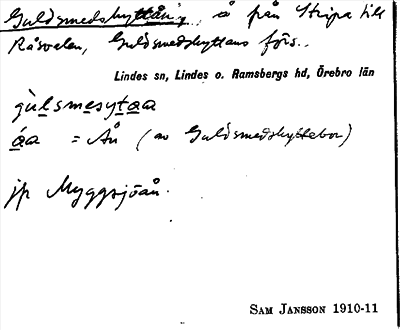 Guldsmedshyttån, å från Stripa till
Råsvalen, Guldsmedshyttans förs.
Lindes sn, Lindes o. Ramsbergs hd, Örebro län
gùlsmesytaa
áa = Ån (av Guldsmedshyttebor)
jfr Myggsjöån.
SAM JANSSON 1910-11